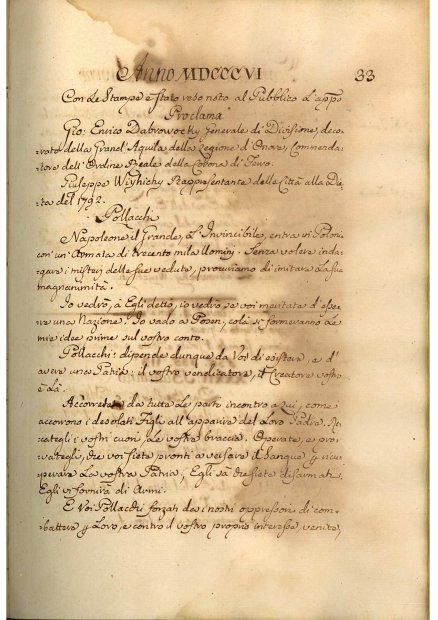 Anno MDCCCVI 33
Con Le Stampe è stato reso noto al Pubblico L'app.o
Proclama
Gio: Enrico Dabrowocky Generale di Divisione, deco-
rato della Grand' Aquila della Legione d'Onore, Commenda-
tore dell'Ordine Reale della Corona di Ferro.
Giuseppe Wiyhichy Rappresentante delle Città alla Die-
ta del 1792.
Pollacchi
Napoleone il Grande, L'Invincibile, entra in Polonia
con un'Armata di trecento mila Uomini. Senza volere inda-
gare i misterj delle sue vedute, proviamo di imitare La sua
magnanimità.
Io vedrò, à Egli detto, io vedrò se voi meritate d'esse-
re una Nazione. Io vado a Posen, colà si formeranno Le
mie idee prime sul vostro conto.
Pollacchi: dipende dunque da Voi di esistere, e d'
avere una Patria: il vostro vendicatore, il Creatore vostro
è Là.
Accorrete da tutte Le parti incontro a Lui, come
accorrono i desolati Figli all'apparire del Loro Padre. Re-
categli i vostri cuori, Le vostre braccia. Operate, e pro-
vategli, che voi siete pronti a versare il Sangue p ricu-
perare La vostra Patria, Egli sà che siete disarmati,
Egli vi fornirà di Armi.
E Voi Pollacchi forzati dai nostri oppressori di com-
battere p Loro, e contro il vostro proprio interesse, venite,